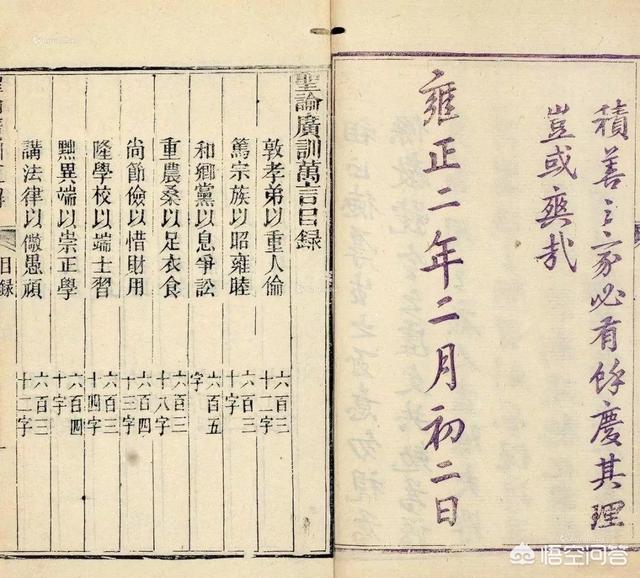 積善之家必有餘慶其理
豈或爽哉
雍正二年二月初二日
聖諭廣訓萬言目錄
敦孝弟以重人倫 六百三十二字
篤宗族以昭雍睦 六百三十字
和鄉黨以息爭訟 六百五字
重農桑以足衣食 六百三十八字
尚節儉以惜財用 六百四十三字
隆學校以端士習 六百三十四字
黜異端以崇正學 六百四十字
講法律以儆愚頑 六百三十二字
目錄
悟空问答